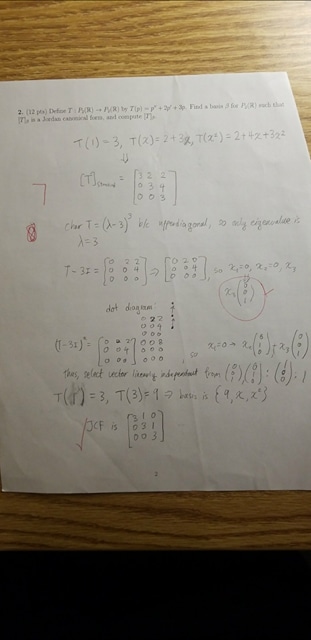 2. (12 pts) Define T : P₂(ℝ) → P₂(ℝ) by T(p) = p'' + 2p' + 3p. Find a basis β for P₂(ℝ) such that
[T]β is a Jordan canonical form, and compute [T]β.
T(1) = 3, T(x) = 2+3x, T(x²) = 2+4x+3x²
⇓
[T]standard = [3 2 2
0 3 4
0 0 3]
7
8
char T = (λ-3)³ b/c upperdiagonal, so only eigenvalue is
λ=3
T-3I = [0 2 2
0 0 4
0 0 0] ⇒ [0 2 0
0 0 4
0 0 0], so x₁=0, x₂=0, x₃
x₃ (0
0
1)
dot diagram:
0 2 2
0 0 4
0 0 0
(T-3I)² = [0 2 2
0 0 4
0 0 0] 0 0 8
0 0 0
0 0 0, so x₁=0 → x₂ (0
1
0) + x₃ (0
0
1)
Thus, select vector linearly independent from (0
0
1), (0
1
0): (1
0
0): 1
T(1) = 3, T(3) = 9 ⇒ basis is {9, x, x²}
JCF is [3 1 0
0 3 1
0 0 3]
2